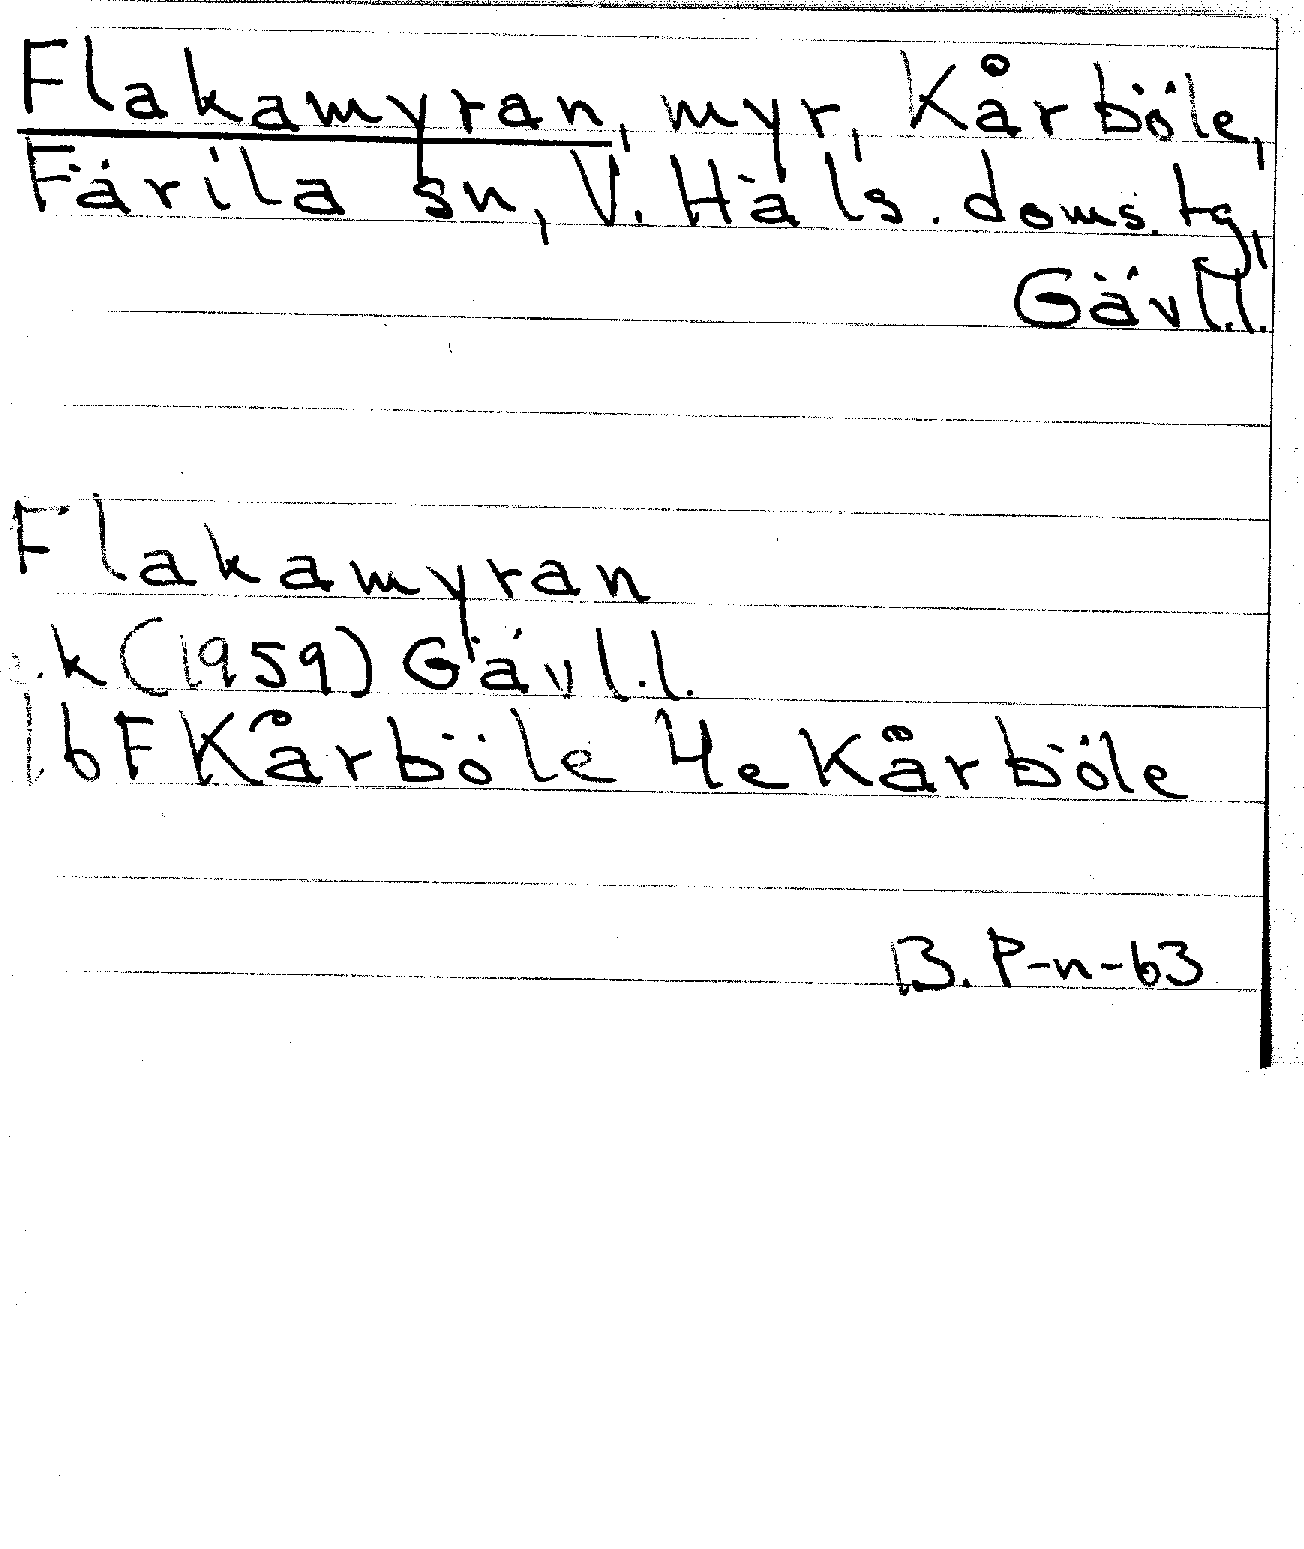 Flakamyran, myr, Kårböle,
Färila sn, V. Häls. doms. tg,
Gävl.l.
Flakamyran
e.k (1959) Gävl.l.
16F Kårböle 4e Kårböle
B. P-n-63